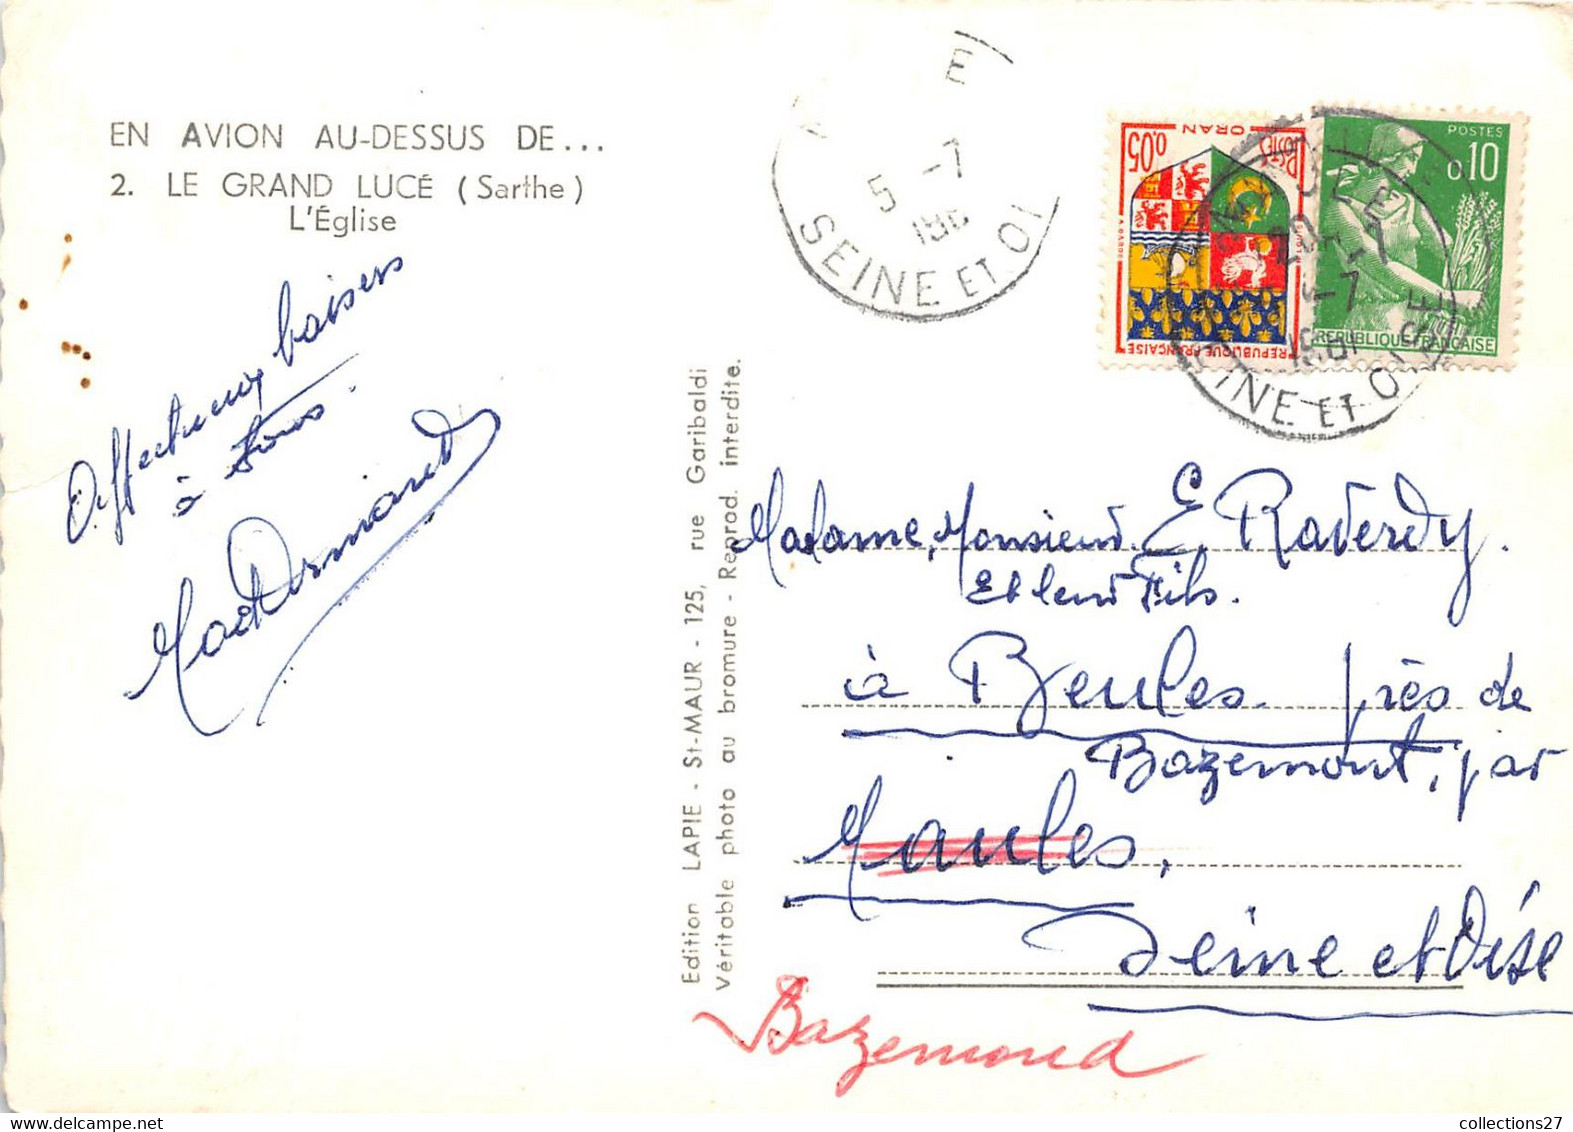 EN AVION AU-DESSUS DE...
2. LE GRAND LUCÉ (Sarthe)
L'Église
Affectueux baisers
à tous.
Edition LAPIE - St-MAUR - 125, rue Garibaldi
Véritable photo au bromure - Reprod. interdite.
E
5 -7
196
SEINE ET OI
POSTES
ORAN
0.05
REPUBLIQUE FRANÇAISE
POSTES
0,10
REPUBLIQUE FRANÇAISE
5-7
1961
SEINE ET OISE
Madame, Monsieur E. Raverdy.
Et leur Fils.
à Beules. près de
Bazemont, par
Maules,
Seine et Oise
Bazemond
collections27